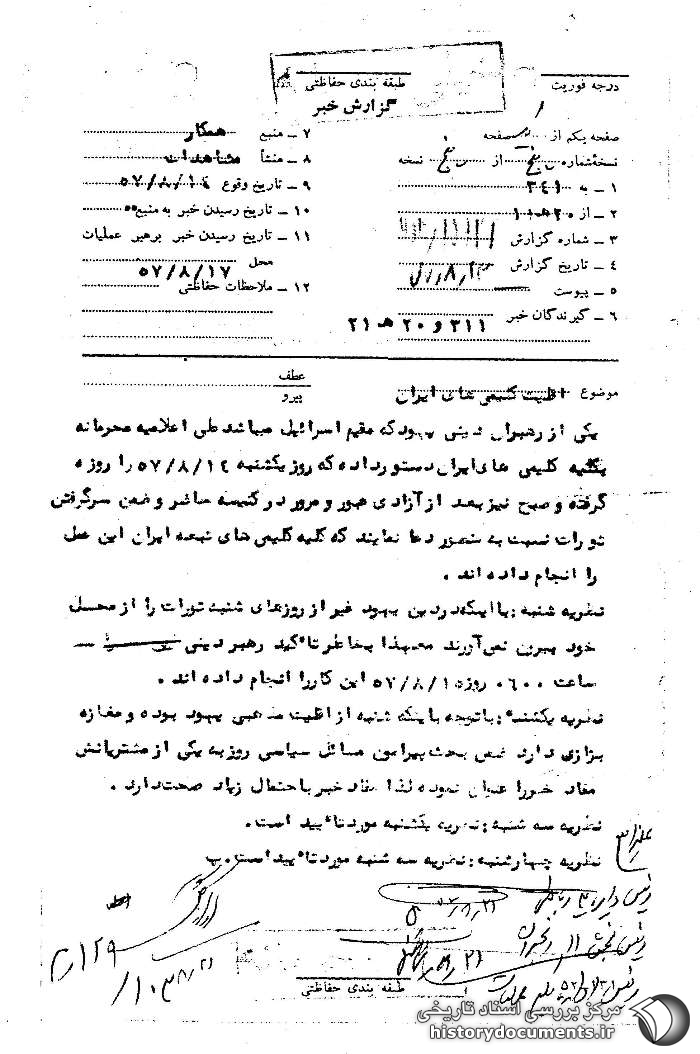 طبقه بندی حفاظتی
درجه فوریت
گزارش خبر
صفحه یکم از صفحه
نسخه شماره از نسخه
۱ ـ به ۳۴۱
۲ ـ از ۲۰ هـ ۱۰
۳ ـ شماره گزارش
۴ ـ تاریخ گزارش
۵ ـ پیوست
۶ ـ گیرندگان خبر ۳۱۱ و ۲۰ هـ ۲۱
۷ ـ منبع همکار
۸ ـ منشأ مشاهدات
۹ ـ تاریخ وقوع ۵۷/۸/۱٤
۱۰ ـ تاریخ رسیدن خبر به منبع
۱۱ ـ تاریخ رسیدن خبر برهبر عملیات
محل ۵۷/۸/۱۷
۱۲ ـ ملاحظات حفاظتی
موضوع اقلیت کلیمی های ایران
عطف
پیرو
یکی از رهبران دینی یهود که مقیم اسرائیل میباشد طی اعلامیه محرمانه
بکلیه کلیمی های ایران دستور داده که روز یکشنبه ۵۷/۸/۱٤ را روزه
گرفته و صبح نیز بعد از آزادی عبور و مرور در کنیسه حاضر و ضمن سر گرفتن
تورات نسبت به دعا نمایند که کلیه کلیمی های تبعه ایران این عمل
را انجام داده اند .
نظریه شنبه : با اینکه در دین یهود غیر از روزهای شنبه تورات را از محل
خود بیرون نمی آورند معهذا بخاطر تاکید رهبر دینی
ساعت ۰۶۰۰ روز ۵۷/۸/۱۵ این کار را انجام داده اند .
نظریه یکشنبه : با توجه باینکه شنبه از اقلیت مذهبی یهود بوده و مغازه
بزازی دارد ضمن بحث پیرامون مسائل سیاسی روز به یکی از مشتریانش
مفاد خبر را عنوان نموده لذا مفاد خبر با احتمال زیاد صحت دارد .
نظریه سه شنبه : نظریه یکشنبه مورد تائید است .
نظریه چهارشنبه : نظریه سه شنبه مورد تائید است . پ
طبقه بندی حفاظتی
مرکز بررسی اسناد تاریخی
historydocuments.ir